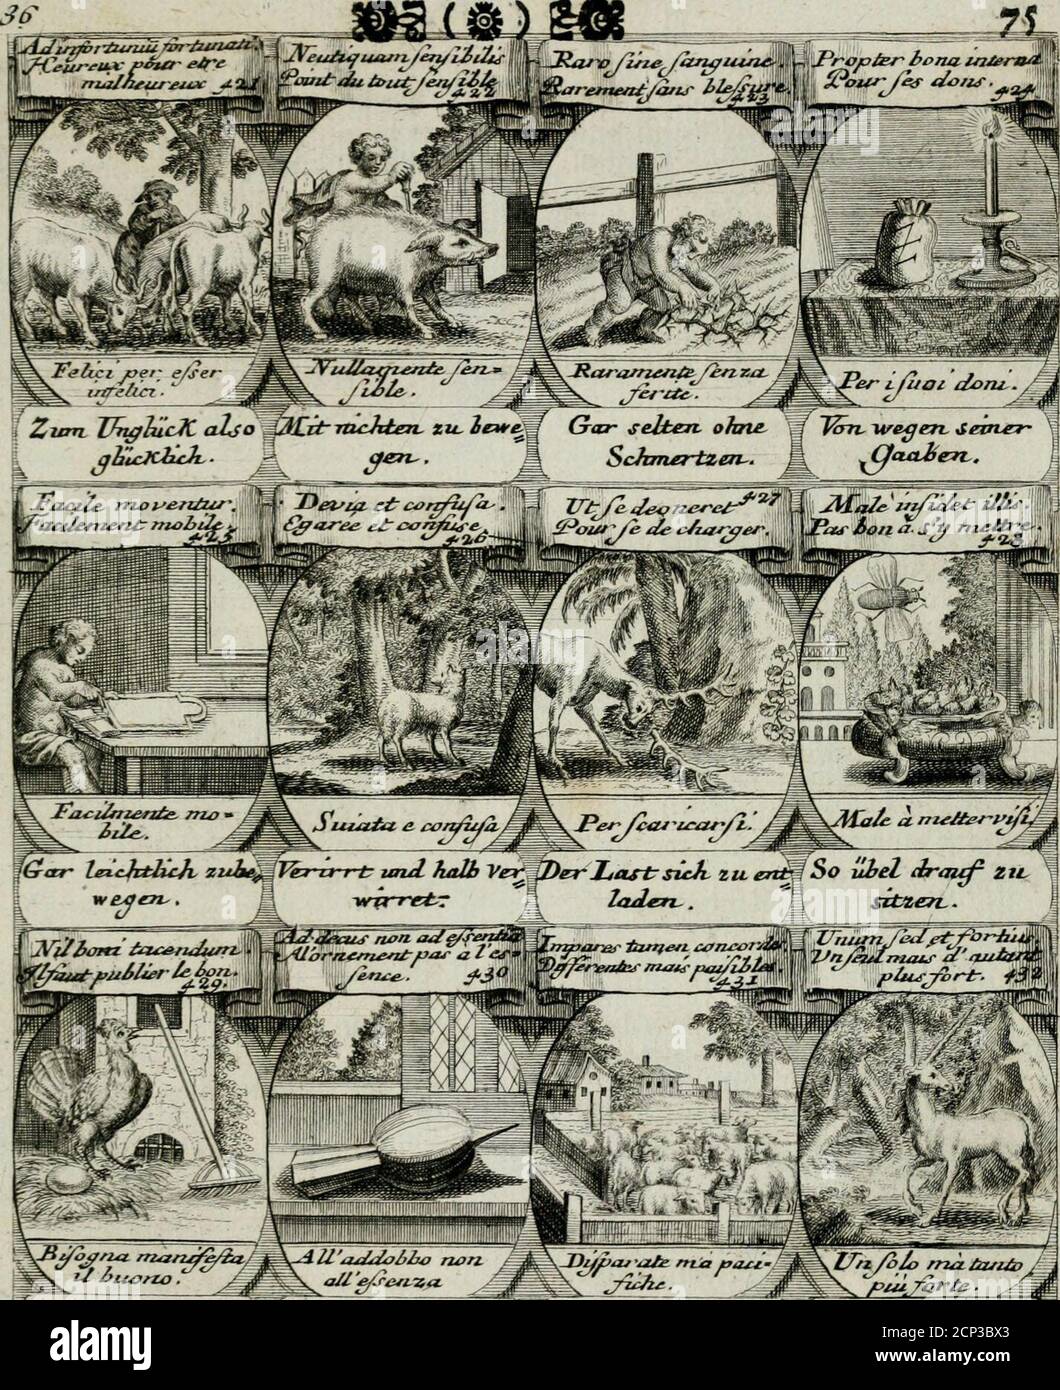 36
75
Ad infortuniũ fortunati.
Heureux pour etre
malheureux 421
Neutiquam senſibilis
Point du tout ſenſible
422
Raro ſine ſanguine.
Rarement ſans bleſſure.
423
Propter bona interna
Pour ſes dons.
424
Felici per eſser
infelici.
Nullamente ſen=
ſible.
Raramente ſenza
ferite.
Per i ſuoi doni.
Zum Unglück also
glücklich.
Mit nichten zu bewe=
gen.
Gar selten ohne
Schmertzen.
Von wegen seiner
Gaaben.
Facile moventur.
Facilement mobile.
425
Devia et confuſa.
Egarée et confuse
426
Ut ſe deoneret 427
Pour ſe de charger.
Malè inſidet illis
Pas bon à s'y mettre.
428
Facilmente mo=
bile.
Suiata e confuſa
Per ſcaricarſi.
Male à mettervisi
Gar leichtlich zube=
wegen.
Verirrt und halb ver=
wirret.
Der Last sich zu ent=
laden.
So übel drauf zu
sitzen.
Nil boni tacendum.
Il faut publier le bon.
429.
Ad decus non ad eſsentia
A l'ornement pas a l'es=
sence. 430
Impares tamen concordes.
Differentes mais paiſibles.
431
Unum ſed et fortius
Un ſeul mais d'autant
plus fort. 432
Biſogna manifeſta
il buono.
All'addobbo non
all'eſsenza
Diſparate ma paci=
fiche.
Un ſolo mà tanto
più forte.
alamy
Image ID: 2CP3BX3
www.alamy.com